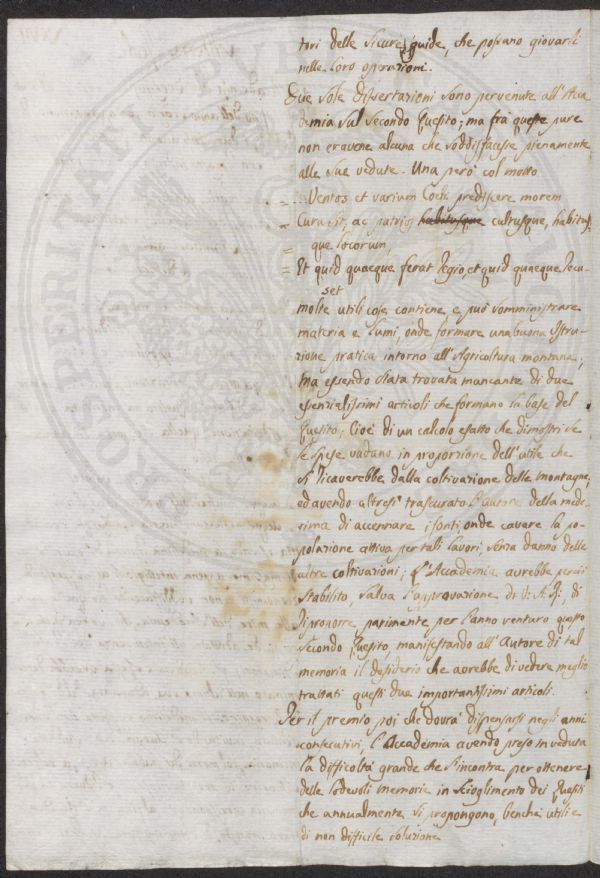 tori delle sicure guide, che possano giovarli
nelle loro operazioni.
Due sole dissertazioni sono pervenute all'Acca
demia sul secondo Quesito; ma fra queste pure
non eravene alcuna che soddisfacesse pienamente
alle sue vedute. Una però col motto
... Ventos et varium Coeli prediscere morem
Cura sit, ac patrios habitusque cultusque, habitus
= que locorum,
= Et quid quaeque ferat Regio, et quid quaeque recu
set
molte utili cose contiene e può somministrare
materia e lumi, onde formare una buona Istru-
zione pratica intorno all'Agricoltura montana;
ma essendo stata trovata mancante di due
essenzialissimi articoli che formano la base del
Quesito; Cioè di un calcolo esatto che dimostri se
le spese vadano in proporzione dell'utile che
si ricaverebbe dalla coltivazione delle montagne;
ed avendo altresì trascurato l'autore della mede
sima di accennare i fonti, onde cavare la po-
polazione attiva per tali lavori, senza danno delle
altre coltivazioni; L'Accademia avrebbe perciò
stabilito, salva l'approvazione di V: A: R:, di
riproporre parimente per l'anno venturo questo
secondo Quesito, manifestando all'Autore di tal
memoria il desiderio che avrebbe di vedere meglio
trattati questi due importantissimi articoli.
Per il premio poi che dovrà dispensarsi negli anni
consecutivi, l'Accademia avendo preso in veduta
la difficoltà grande che s'incontra per ottenere
delle lodevoli memorie in iscioglimento dei Quesiti
che annualmente si propongono, benchè utili e
di non difficile soluzione
PROSPERITATI PUB